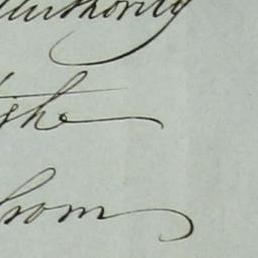 Authority
the
from